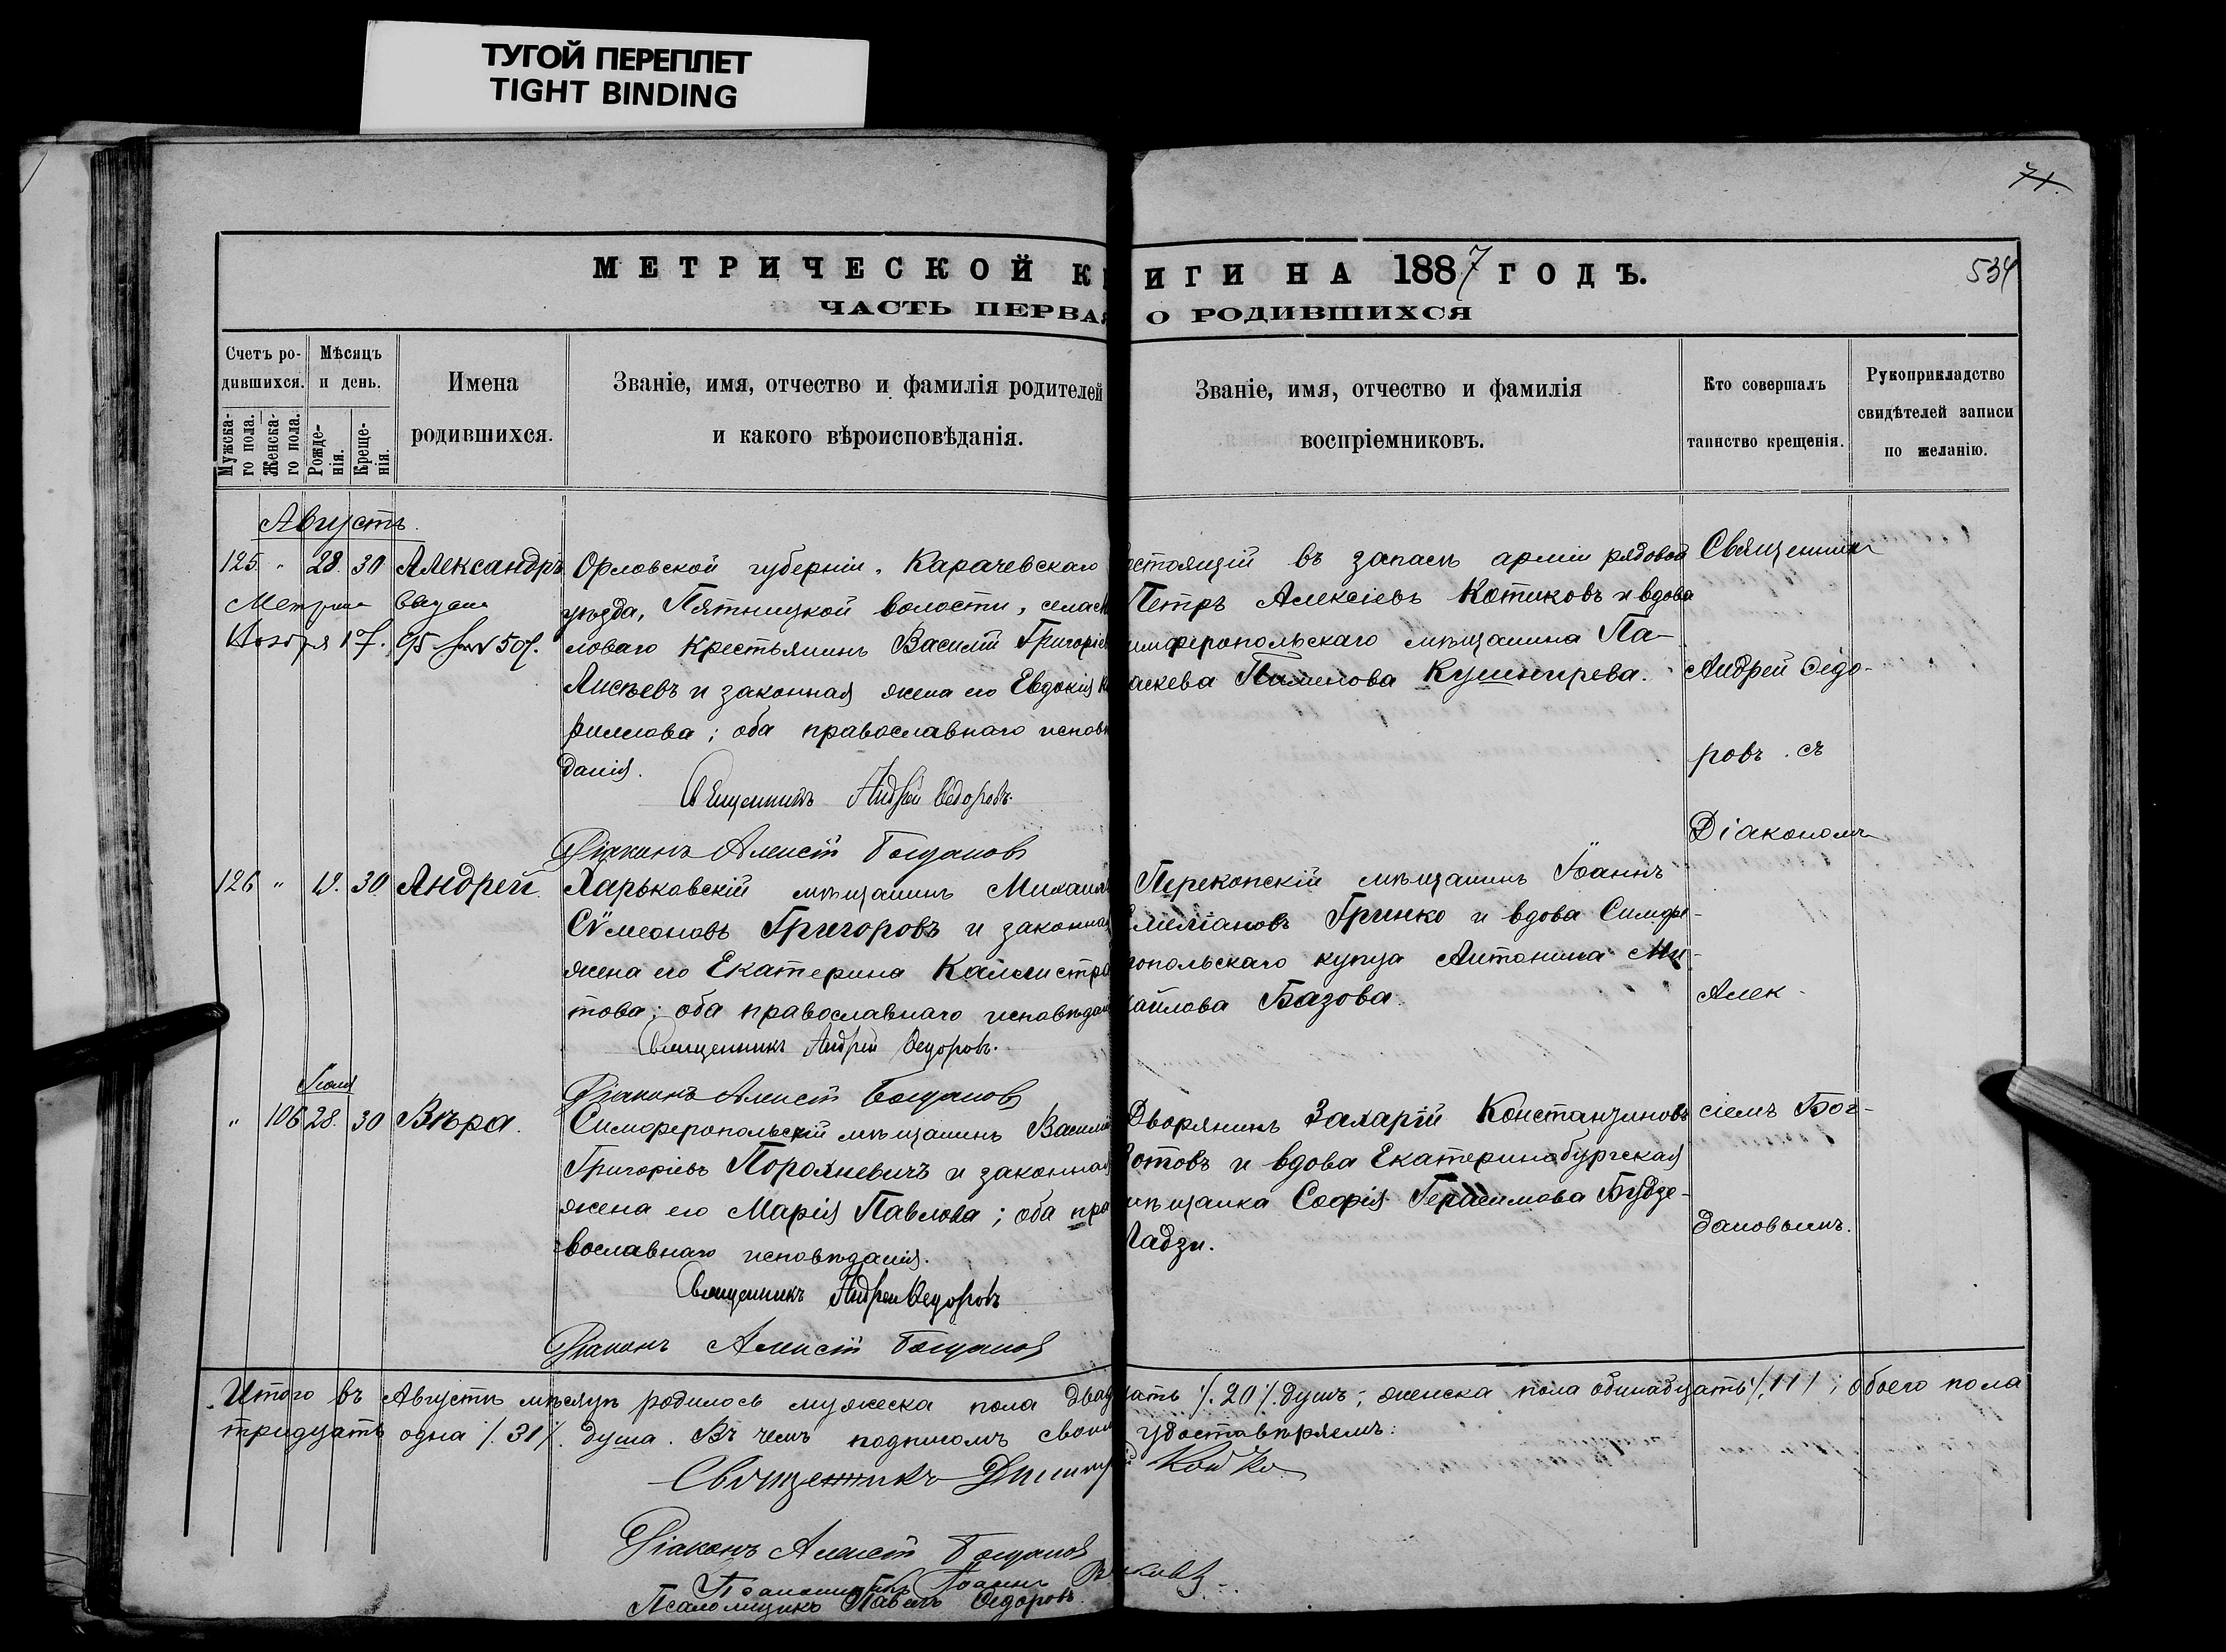 ТУГОЙ ПЕРЕПЛЕТ
TIGHT BINDING
71.
МЕТРИЧЕСКОЙ К ИГИ НА 1887 ГОДЪ.
534
ЧАСТЬ ПЕРВАЯ О РОДИВШИХСЯ
Счетъ ро-
дившихся.
Мужска-
го пола.
Женска-
го пола.
Мѣсяцъ
и день.
Рожде-
нія.
Креще-
нія.
Имена
родившихся.
Званіе, имя, отчество и фамилія родителей
и какого вѣроисповѣданія.
Званіе, имя, отчество и фамилія
воспріемниковъ.
Кто совершалъ
таинство крещенія.
Рукоприкладство
свидѣтелей записи
по желанію.
Августъ.
125 " 28. 30 Александръ
Ноября 17. 95 507.
Орловской губерніи, Карачевскаго
уѣзда, Пятницкой волости, села
ловаго крестьянинъ Василій Григоріев
Лисѣевъ и законная жена его Евдокія К
риллова; оба православнаго исповѣ
данія.
Священникъ Андрей Ѳедоровъ.
Діаконъ Алексій Богданов
стоящій въ запасѣ арміи рядовой
Петръ Алексіевъ Котиковъ и вдова
имферопольскаго мѣщанина Па-
Пименова Кушнирева.
Священник
Андрей Ѳедо-
ровъ съ
Діакономъ
Алек-
сіемъ Бог-
дановымъ.
126 " 19. 30 Андрей.
Харьковскій мѣщанинъ Михаил
Сѵмеоновъ Григоровъ и законная
жена его Екатерина Каллистра
това; оба православнаго исповѣдан
Священникъ Андрей Ѳедоровъ.
Діаконъ Алексій Богданов
Перекопскій мѣщанинъ Іоаннъ
Емеліановъ Гринко и вдова Симфе-
ропольскаго купца Антонина Ми-
хайлова Базова.
Іюля
" 106 28. 30 Вѣра.
Симферопольскій мѣщанинъ Василій
Григоріевъ Порохневичъ и законная
жена его Марія Павлова; оба пра
вославнаго исповѣданія.
Священникъ Андрей Ѳедоровъ
Діаконъ Алексій Богданов
Дворянинъ Захарій Константиновъ
отовъ и вдова Екатеринобургская
мѣщанка Софія Герасимова Будзе-
Гадзи.
Итого въ Августѣ мѣсяцѣ родилось мужеска пола двадцать /.20/. душъ; женска пола одинадцать /.11/; обоего пола
тридцать одна /.31/. душа. Въ чемъ подписомъ своим удостовѣряемъ:
Священникъ Димитрій Койко
Діаконъ Алексій Богданов
Псаломщикъ Іоаннъ
Псаломщикъ Павелъ Ѳедоровъ